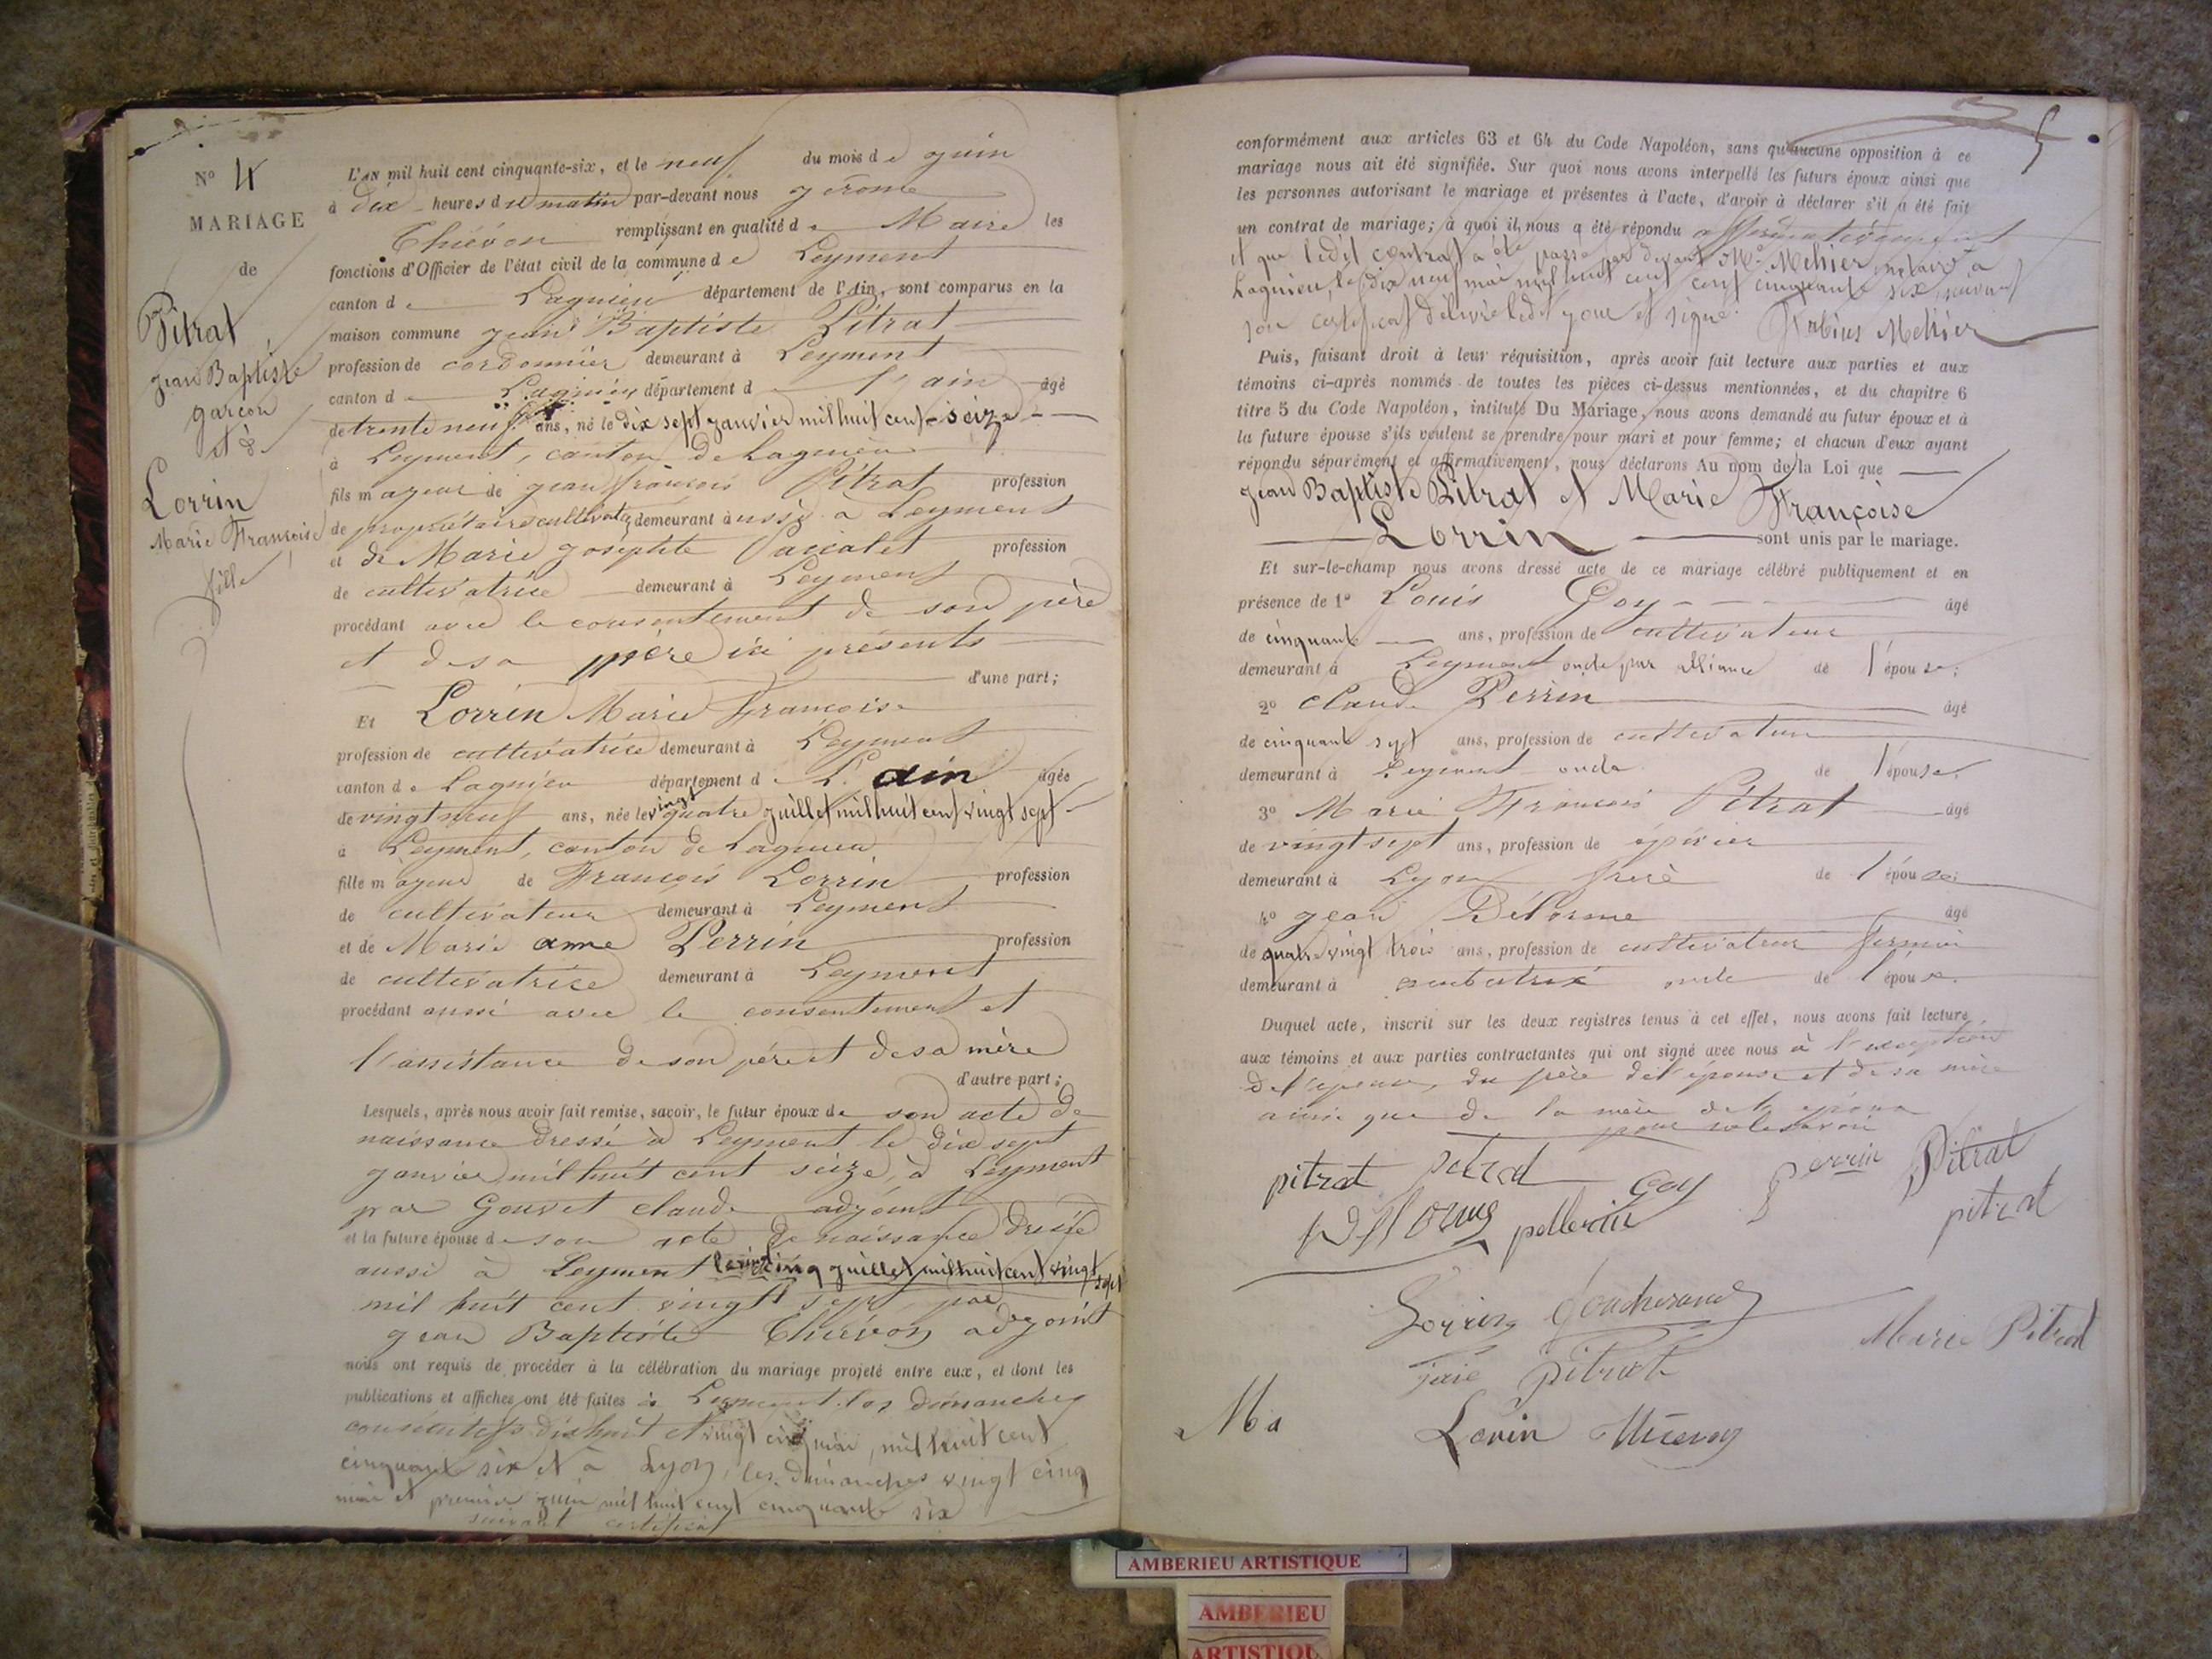 N° 4
MARIAGE
de
Pitrat
Jean Baptiste
garçon
et de
Lorrin
Marie Françoise
fille
L'AN mil huit cent cinquante-six, et le neuf du mois de juin
à dix heures du matin par-devant nous gérome
Thiévon remplissant en qualité de Maire les
fonctions d'Officier de l'état civil de la commune de Leyment
canton de Lagnieu département de l'Ain, sont comparus en la
maison commune jean Baptiste Pitrat
profession de cordonnier demeurant à Leyment
canton de Lagnieu département d l'ain âgé
de trente neuf ans, né le dix sept janvier mil huit cent seize
à Leyment, canton de Lagnieu
fils majeur de jean françois Pitrat profession
de propriétaire cultivateur demeurant aussi à Leyment
et de Marie josephte profession
de cultivatrice demeurant à Leyment
procédant avec le consentement de son père
et de sa mère ici présents
d'une part;
Et Lorrin Marie Françoise
profession de cultivatrice demeurant à Leyment
canton de Lagnieu département d L'ain âgée
de vingt neuf ans, née le vingt quatre juillet mil huit cent vingt sept
à Leyment, canton de Lagnieu
fille majeur de François Lorrin profession
de cultivateur demeurant à Leyment
et de Marie anne Perrin profession
de cultivatrice demeurant à Leyment
procédant aussi avec le consentement et
l'assistance de son père et de sa mère
d'autre part;
Lesquels, après nous avoir fait remise, savoir, le futur époux de son acte de
naissance dressé à Leyment le dix sept
janvier mil huit cent seize, à Leyment
par Gouvet claude adjoint
et la future épouse de son acte de naissance dressé
aussi à Leyment le vingt cinq juillet mil huit cent vingt sept
mil huit cent vingt sept par
jean Baptiste Thiévon adjoint
nous ont requis de procéder à la célébration du mariage projeté entre eux, et dont les
publications et affiches ont été faites à Leyment les dimanches
consécutifs dix huit et vingt cinq mai, mil huit cent
cinquante six et à Lyon, les dimanches vingt cinq
mai et premier juin mil huit cent cinquante six
suivant certificat
5
conformément aux articles 63 et 64 du Code Napoléon, sans qu'aucune opposition à ce
mariage nous ait été signifiée. Sur quoi nous avons interpellé les futurs époux ainsi que
les personnes autorisant le mariage et présentes à l'acte, d'avoir à déclarer s'il a été fait
un contrat de mariage; à quoi il nous a été répondu affirmativement
et que ledit contrat a été passé par devant Me Mehier notaire à
Lagnieu, le dix neuf mai mil huit cent cent cinquante six, suivant
son certificat délivré ledit jour et signé Mehier
Puis, faisant droit à leur réquisition, après avoir fait lecture aux parties et aux
témoins ci-après nommés de toutes les pièces ci-dessus mentionnées, et du chapitre 6
titre 5 du Code Napoléon, intitulé Du Mariage, nous avons demandé au futur époux et à
la future épouse s'ils veulent se prendre pour mari et pour femme; et chacun d'eux ayant
répondu séparément et affirmativement, nous déclarons Au nom de la Loi que
jean Baptiste Pitrat et Marie Françoise
Lorrin sont unis par le mariage.
Et sur-le-champ nous avons dressé acte de ce mariage célébré publiquement et en
présence de 1° Louis Goy âgé
de cinquante ans, profession de cultivateur
demeurant à Leyment oncle par alliance de l'épouse;
2° claude Perrin âgé
de cinquante sept ans, profession de cultivateur
demeurant à Leyment oncle de l'épouse,
3° Marie François Pitrat âgé
de vingt sept ans, profession de épicier
demeurant à Lyon frère de l'époux
4° jean Delorme âgé
de quatre vingt trois ans, profession de cultivateur fermier
demeurant à oncle de l'époux.
Duquel acte, inscrit sur les deux registres tenus à cet effet, nous avons fait lecture
aux témoins et aux parties contractantes qui ont signé avec nous à l'exception
de l'épouse, du père de l'épouse et de sa mère
ainsi que de la mère de l'époux
pour ne le savoir
pitrat pitrat Goy Perrin Pitrat
Delorme pellerin pitrat
Lorrin
pitrat Marie Pitrat
Ma Lorin Thiévon
AMBERIEU ARTISTIQUE
AMBERIEU
ARTISTIQU